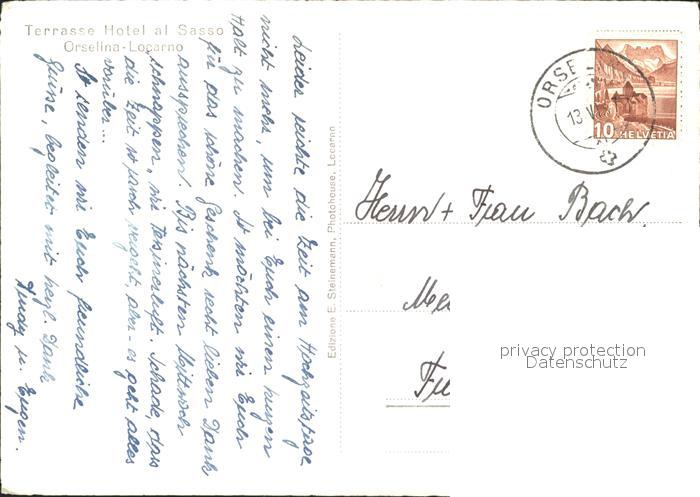 Terrasse Hotel al Sasso
Orselina-Locarno
Leider reichte die Zeit am Hochzeitstage
nicht mehr, um bei Euch einen kurzen
Halt zu machen. So möchten wir Euch
für das schöne Geschenk recht lieben Dank
aussprechen! Bis nächsten Mittwoch
schnappen wir Tessinerluft. Schade, dass
die Zeit so rasch vergeht, aber - es geht alles
vorüber...
So senden wir Euch freundliche
Grüsse, begleitet mit herzl. Dank
u. Eugen.
Edizione E. Steinemann, Photohouse, Locarno
ORSE
13. V
10 HELVETIA
Herrn + Frau Bach
privacy protection
Datenschutz